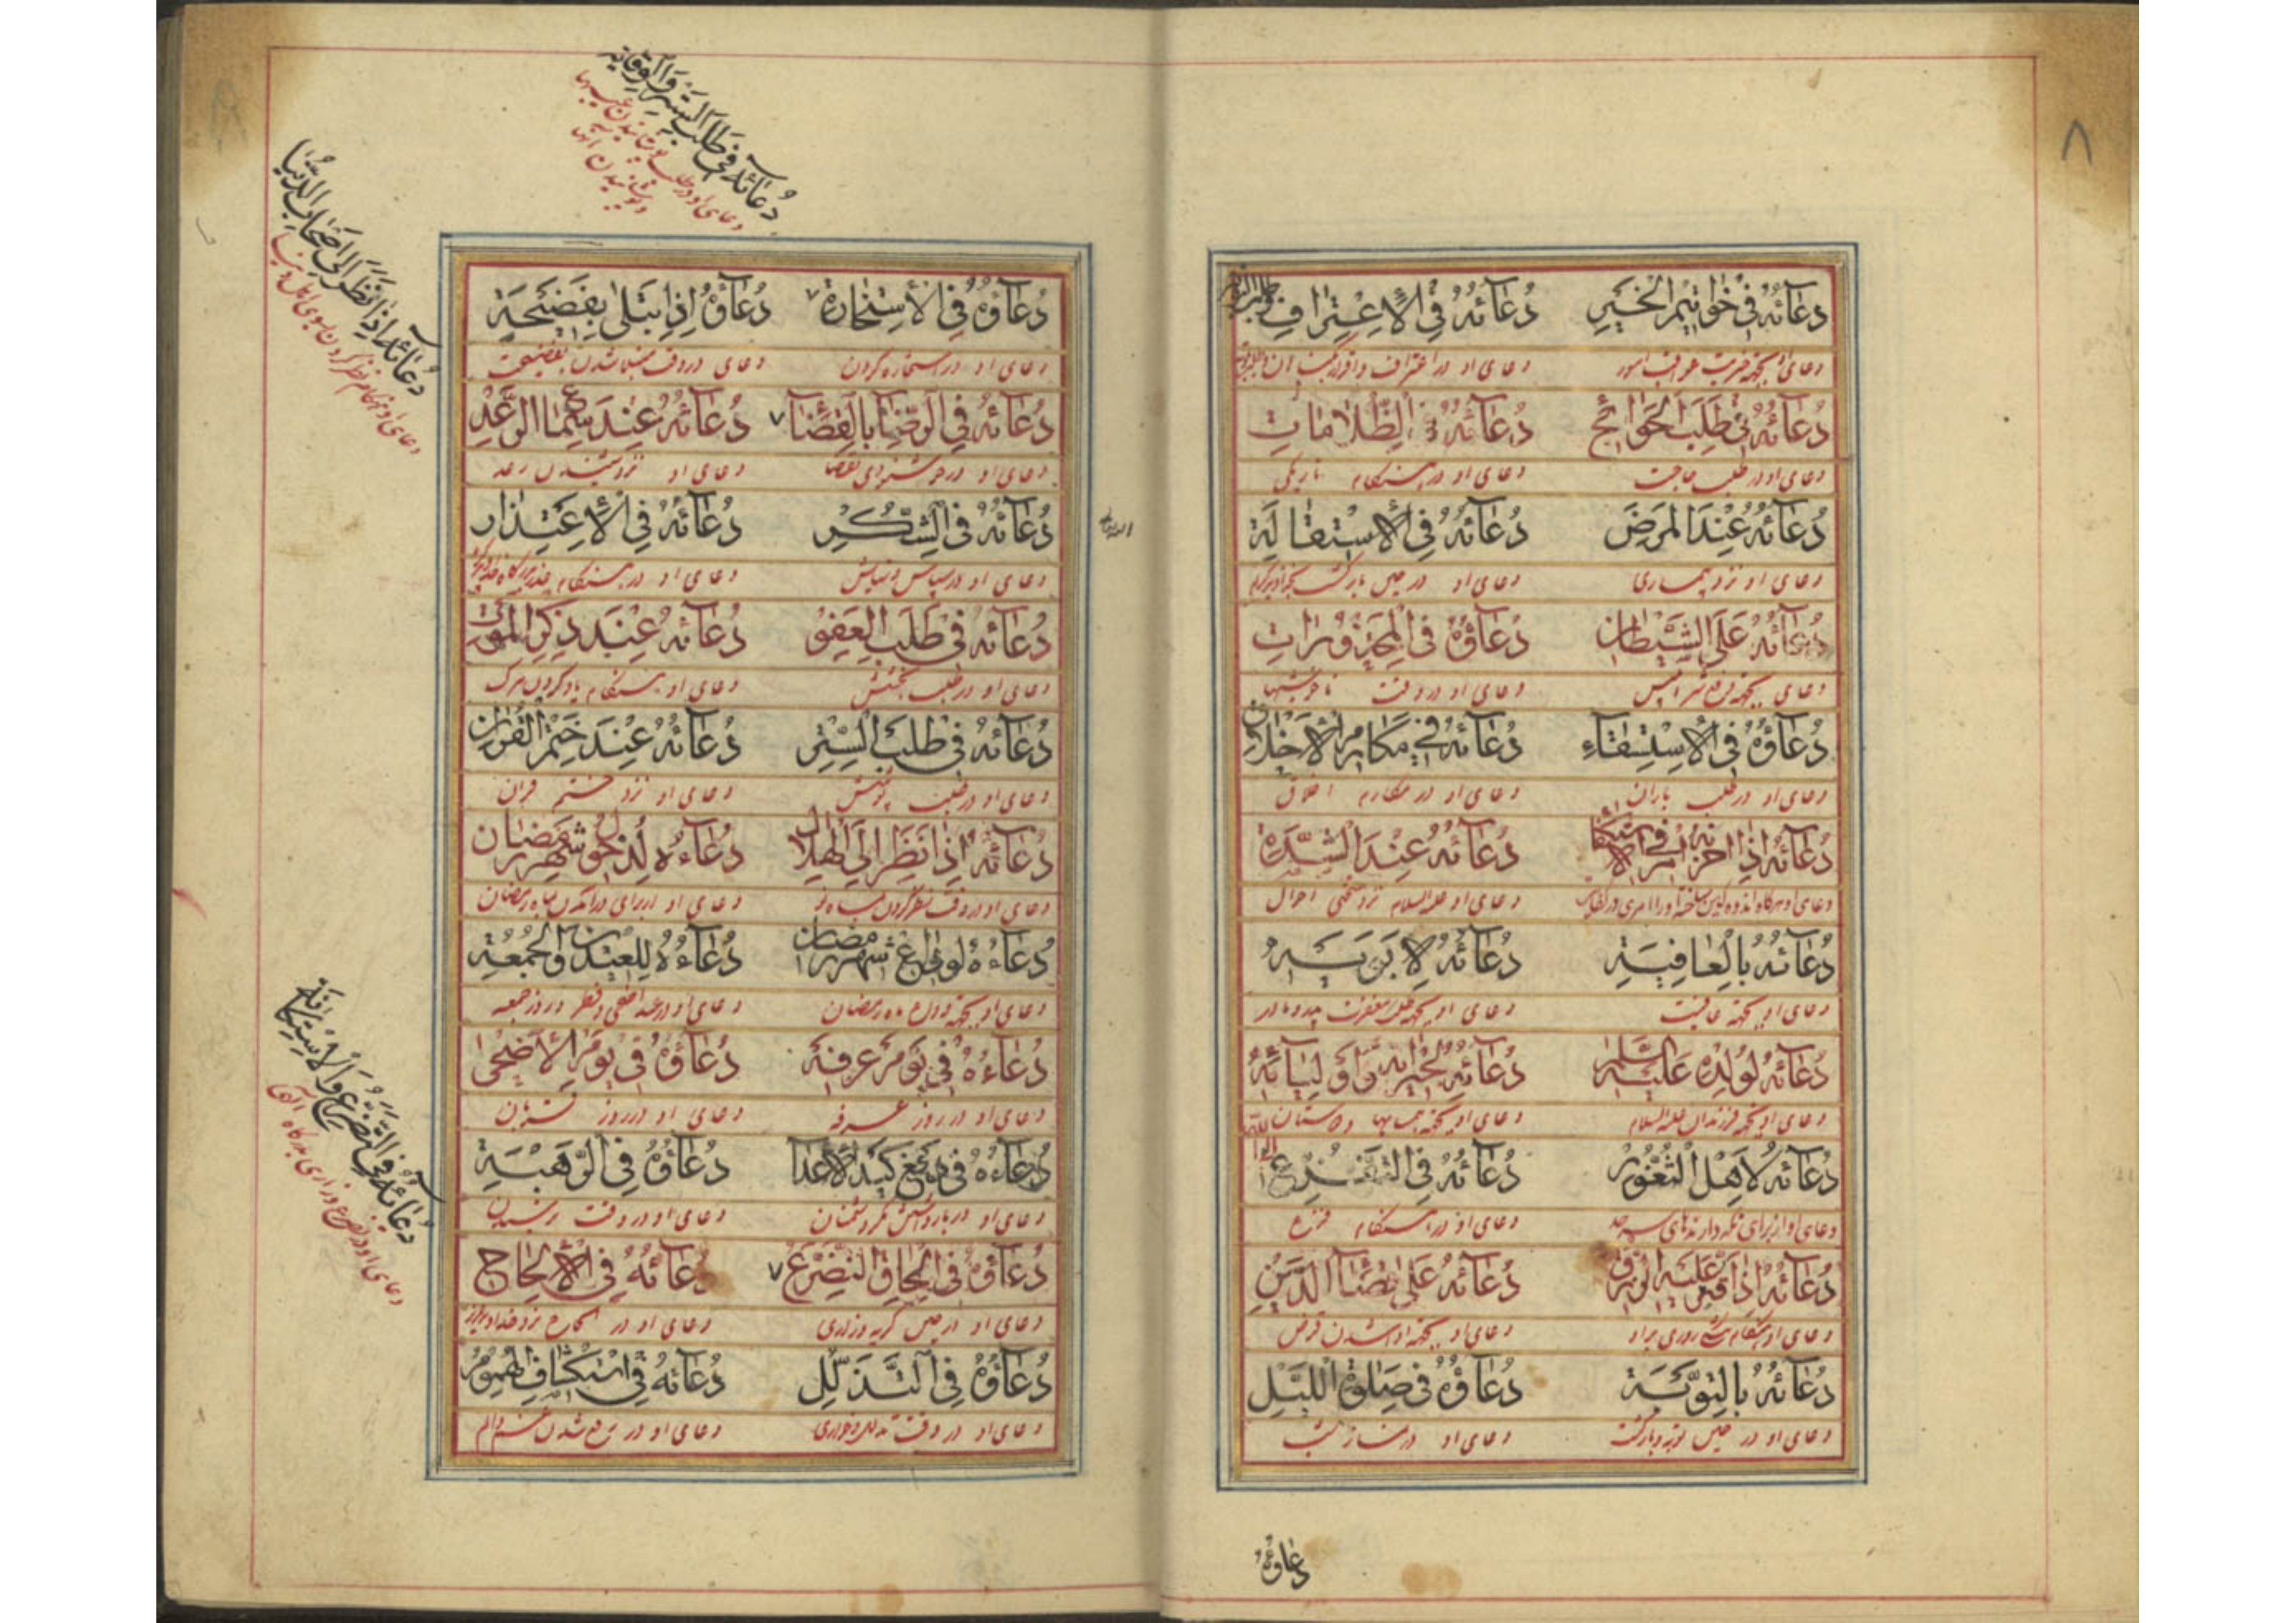 ۸
دعآئه في خواتيم الخير دعآئه في الأعتراف
دعای او در اعتراف و اقرار
دعآئه في طلب الحوائج دعآئه الظلامات
دعای او در طلب حاجت دعای او در هنگام تاریکی
دعآئه عند المرض دعآئه في الأستقالة
دعای او نزد بیماری دعای او در حین بازگشت
دعآئه على الشيطان دعاؤه في المحذورات
دعای او در وقت
دعاؤه في الأستسقاء دعآئه في مكارم الأخلاق
دعای او در طلب باران دعای او در مکارم اخلاق
دعآئه إذا احزنه امر دعآئه عند الشدة
دعای او علیه السلام نزد سختی احوال
دعآئه بالعافية دعآئه لابويه
دعای او بجهته عافیت دعای او بجهته طلب مغفرت پدر و مادر
دعآئه لولده عليه السلم دعآئه لجيرانه واوليآئه
دعای او بجهته فرزندان علیه السلام دعای او بجهته همسایها و دوستان
دعآئه لاهل الثغور دعآئه في التفزع
دعای او از برای نکه دارندهای سرحد دعای او در هنگام فزع
دعآئه إذا قتر عليه الرزق دعآئه على قضآ الدين
دعای او بجهته ادا شدن قرض
دعآئه بالتوبة دعاؤه في صلوة الليل
دعای او در حین توبه و بازگشت دعای او در نماز شب
دعاؤه
دعآئه في طلب الستر والوقاية
دعای او در طلب
و پوشانیدن
دعآئه إذا نظر الى اصحاب الدنيا
دعای او هنگام نظر کردن بسوی اهل دنیا
دعاؤه في الأستخارة دعاؤه إذا بتلى بفضيحة
دعای او در استخاره کردن دعای در وقت مبتلا شدن بفضیحت
دعآئه في الرضا بالقضآ دعآئه عند سماع الرعد
دعای او در خوشنودی بقضا دعای او نزد شنیدن رعد
دعآئه في الشكر دعآئه في الأعتذار
دعای او در سپاس و نیایش دعای او در هنگام
دعآئه في طلب العفو دعآئه عند ذكر الموت
دعای او در طلب بخشش دعای او هنگام یاد کردن مرک
دعآئه في طلب الستر دعآئه عند ختم القران
دعای او در طلب پوشش دعای او نزد ختم قران
دعآئه إذا نظر الى الهلال دعاءه لدخول شهر رمضان
دعای او در وقت نظر کردن بماه نو دعای او از برای در آمدن ماه رمضان
دعاءه لوداع شهر رمضان دعاءه للعيدين والجمعة
دعای او بجهته وداع ماه رمضان دعای او در عید اضحی و فطر و روز جمعه
دعاءه في يوم عرفة دعاؤه في يوم الأضحى
دعای او در روز عرفه دعای او در روز قربان
دعاءه في دفع كيد الأعدا دعاؤه في الرهبة
دعای او در باز داشتن مکر دشمنان دعای او در وقت ترسیدن
دعاؤه في الحاق التضرع دعآئه في الألحاح
دعای او در حین کریه و زاری دعای او در الحاح نزد خداوند
دعاؤه في التذلل دعآئه في استكشاف الهموم
دعای او در وقت تذلل و خواری دعای او در رفع شدن غم و الم
دعآئه في التضرع والأستكانة
دعای او در تضرع و زاری بدرکاه الهی